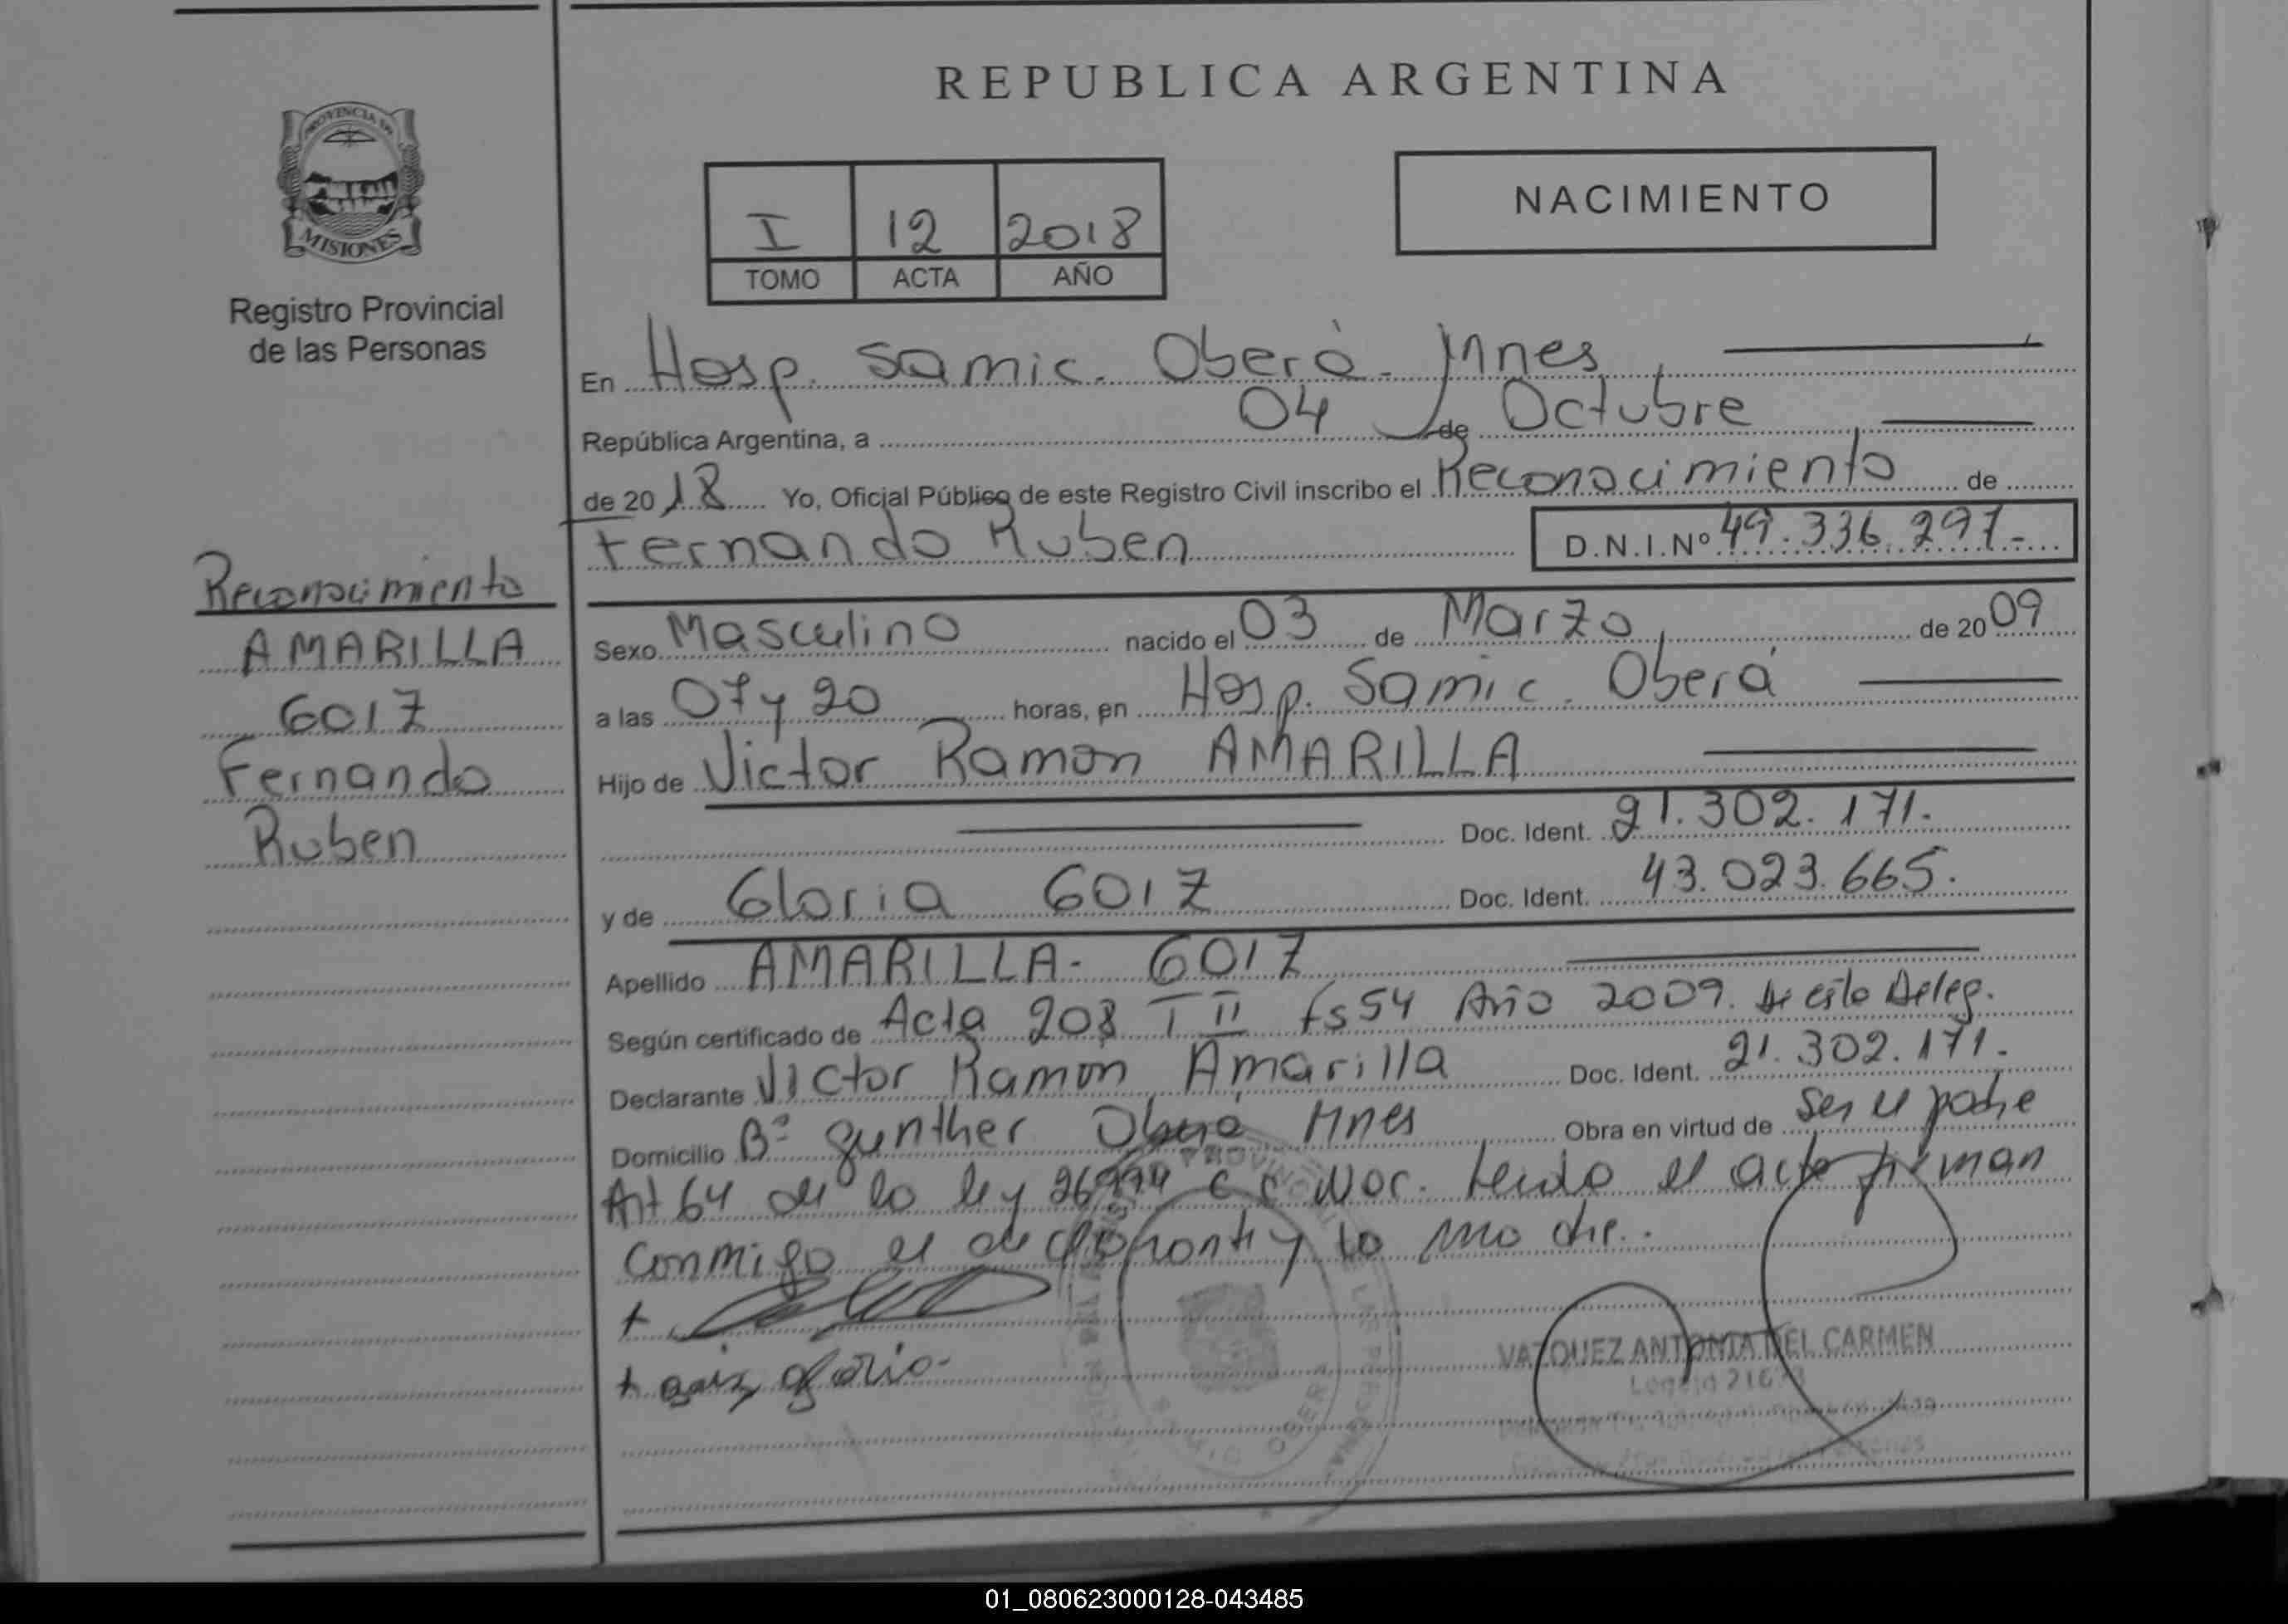 REPUBLICA ARGENTINA
PROVINCIA DE
MISIONES
Registro Provincial
de las Personas
NACIMIENTO
I 12 2018
TOMO ACTA AÑO
En Hosp. Samic. Oberá. Mnes
República Argentina, a 04 de Octubre
de 2018 Yo, Oficial Público de este Registro Civil inscribo el Reconocimiento de
Fernando Ruben D.N.I.Nº 49.336.297.-
Reconocimiento
AMARILLA
GOIZ
Fernando
Ruben
Sexo Masculino nacido el 03 de Marzo de 2009
a las 07 y 20 horas, en Hosp. Samic. Oberá
Hijo de Victor Ramon AMARILLA
Doc. Ident. 21.302.171.
y de Gloria GOIZ Doc. Ident. 43.023.665.
Apellido AMARILLA- GOIZ
Según certificado de Acta 208 T II Fs 54 Año 2009. de esta Deleg.
Declarante Victor Ramon Amarilla Doc. Ident. 21.302.171.
Domicilio Bº gunther Oberá Mnes Obra en virtud de ser el padre
Art 64 de la ley 26994 C C Leido el acta firman
conmigo el declarante y la madre.
+
+ goiz gloria.
VAZQUEZ ANTONIA DEL CARMEN
01_080623000128-043485